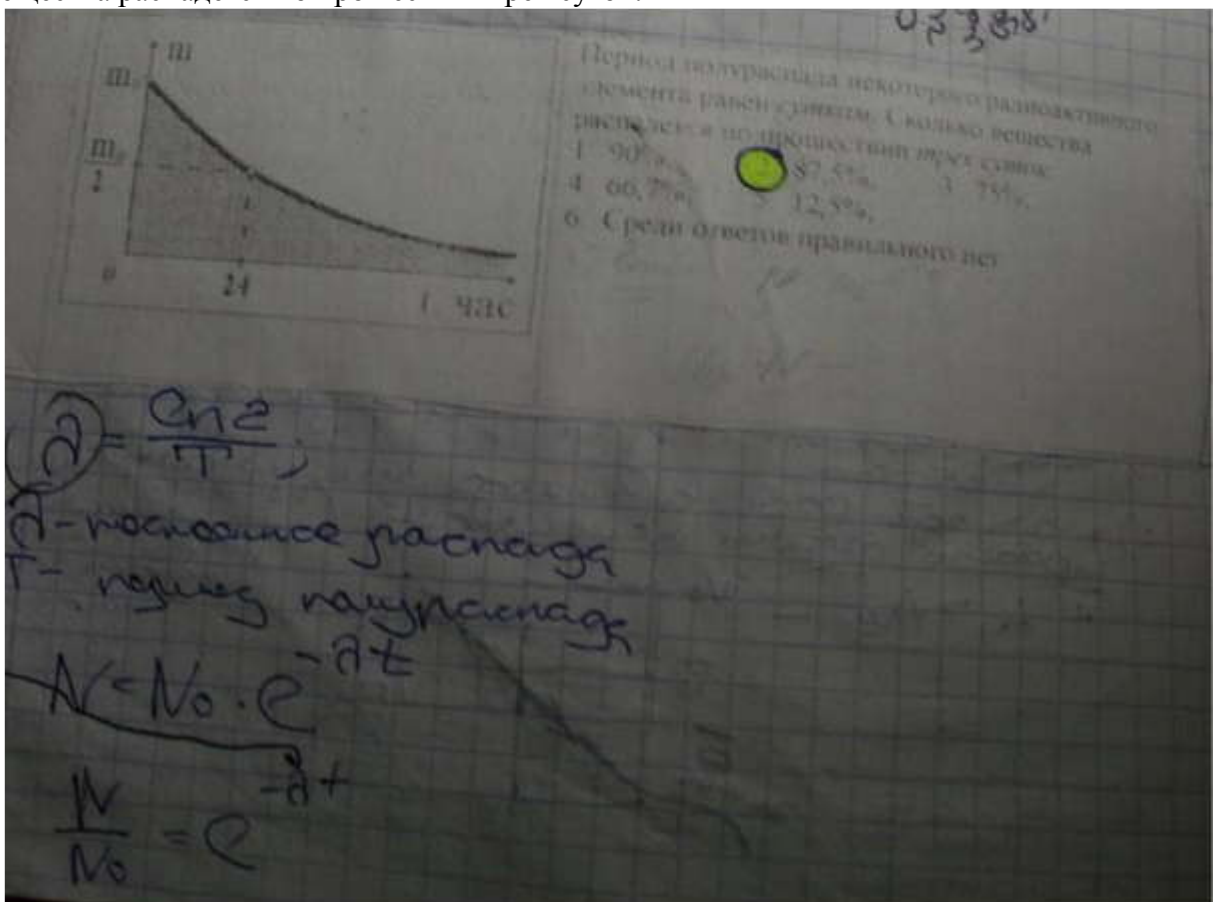 m
m₀
m₀
2
0
24
t час
Период полураспада некоторого радиоактивного
элемента равен суткам. Сколько вещества
распадется по прошествии трех суток
1 90%, 2 87,5%, 3 75%,
4 66,7%, 5 12,5%,
6 Среди ответов правильного нет
λ = ln2
T ;
λ - распада
T - период полураспада
N = N₀ · e^-λt
N
N₀ = e^-λt